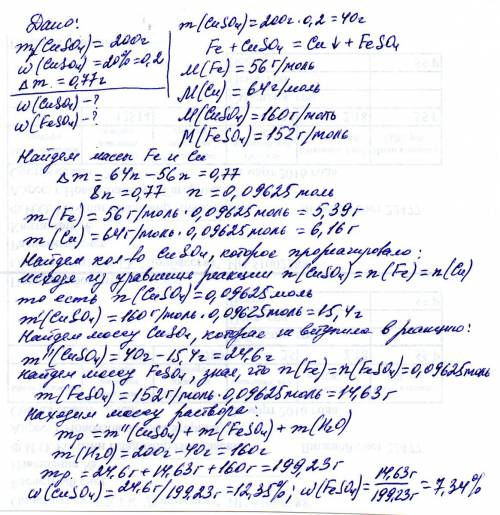 Дано:
m(CuSO₄) = 200г
w(CuSO₄) = 20% = 0,2
Δm = 0,77г
w(CuSO₄) - ?
w(FeSO₄) - ?
m(CuSO₄) = 200г · 0,2 = 40г
Fe + CuSO₄ = Cu↓ + FeSO₄
M(Fe) = 56 г/моль
M(Cu) = 64 г/моль
M(CuSO₄) = 160 г/моль
M(FeSO₄) = 152 г/моль
Найдем массы Fe и Cu
Δm = 64n - 56n = 0,77
8n = 0,77 n = 0,09625 моль
m(Fe) = 56 г/моль · 0,09625 моль = 5,39г
m(Cu) = 64 г/моль · 0,09625 моль = 6,16г
Найдем кол-во CuSO₄, которое прореагировало:
исходя из уравнения реакции n(CuSO₄) = n(Fe) = n(Cu)
то есть n(CuSO₄) = 0,09625 моль
m'(CuSO₄) = 160 г/моль · 0,09625 моль = 15,4г
Найдем массу CuSO₄, которая не вступила в реакцию:
m''(CuSO₄) = 40г - 15,4г = 24,6г
Найдем массу FeSO₄, зная, что n(Fe) = n(FeSO₄) = 0,09625 моль
m(FeSO₄) = 152 г/моль · 0,09625 моль = 14,63г
Находим массу раствора:
mр = m''(CuSO₄) + m(FeSO₄) + m(H₂O)
m(H₂O) = 200г - 40г = 160г
mр = 24,6г + 14,63г + 160г = 199,23г
w(CuSO₄) = 24,6г / 199,23г = 12,35%; w(FeSO₄) = 14,63г / 199,23г = 7,34%